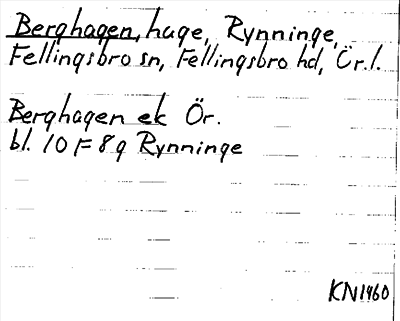 Berghagen, hage, Rynninge,
Fellingsbro sn, Fellingsbro hd, Ör.l.
Berghagen ek Ör.
bl. 10F8g Rynninge
KN1960